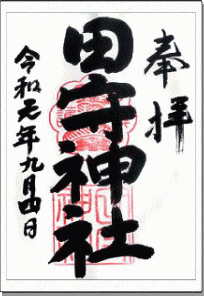 奉拝
田守神社
令和元年九月四日